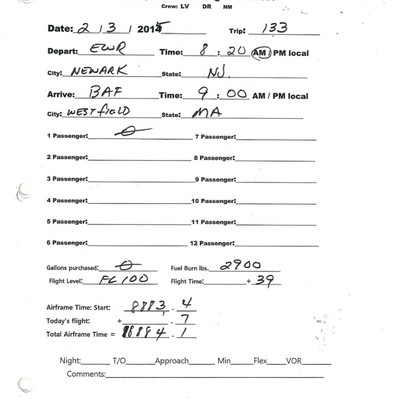 Crew: LV DR NM
Date: 2/3/2015 Trip: 133
Depart: EWR Time: 8:20 AM / PM local
City: NEWARK State: NJ
Arrive: BAF Time: 9:00 AM / PM local
City: WESTFIELD State: MA
1 Passenger: 0 7 Passenger:
2 Passenger: 8 Passenger:
3 Passenger: 9 Passenger:
4 Passenger: 10 Passenger:
5 Passenger: 11 Passenger:
6 Passenger: 12 Passenger:
Gallons purchased: 0 Fuel Burn lbs. 2900
Flight Level: FL100 Flight Time: + 39
Airframe Time: Start: 8883.4
Today's flight: + .7
Total Airframe Time = 8884.1
Night: T/O Approach Min Flex VOR
Comments: